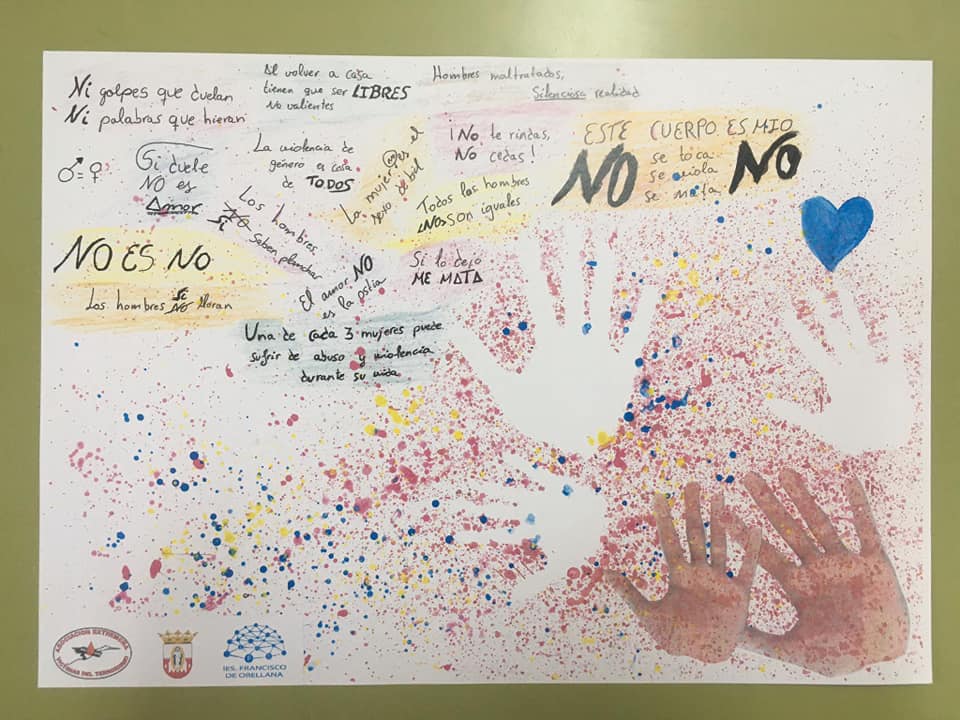 Ni golpes que duelan
Ni palabras que hieran
Al volver a casa
tienen que ser LIBRES
No valientes
Hombres maltratados,
Silenciosa realidad
♂=♀
Si duele
NO es
Amor
La violencia de
género es cosa
de TODOS
La mujer NO es el
sexo débil
¡No te rindas,
No cedas!
ESTE CUERPO ES MIO
NO
se toca
se viola
se mata
NO
Los hombres
NO
SI
saben planchar
Todos los hombres
NO son iguales
NO ES NO
Los hombres SI NO lloran
El amor NO
es la
Si lo dejo
ME MATA
Una de cada 3 mujeres puede
sufrir de abuso y violencia
durante su vida
ASOCIACION EXTREMEÑA
VICTIMAS DEL TERRORISMO
IES. FRANCISCO
DE ORELLANA